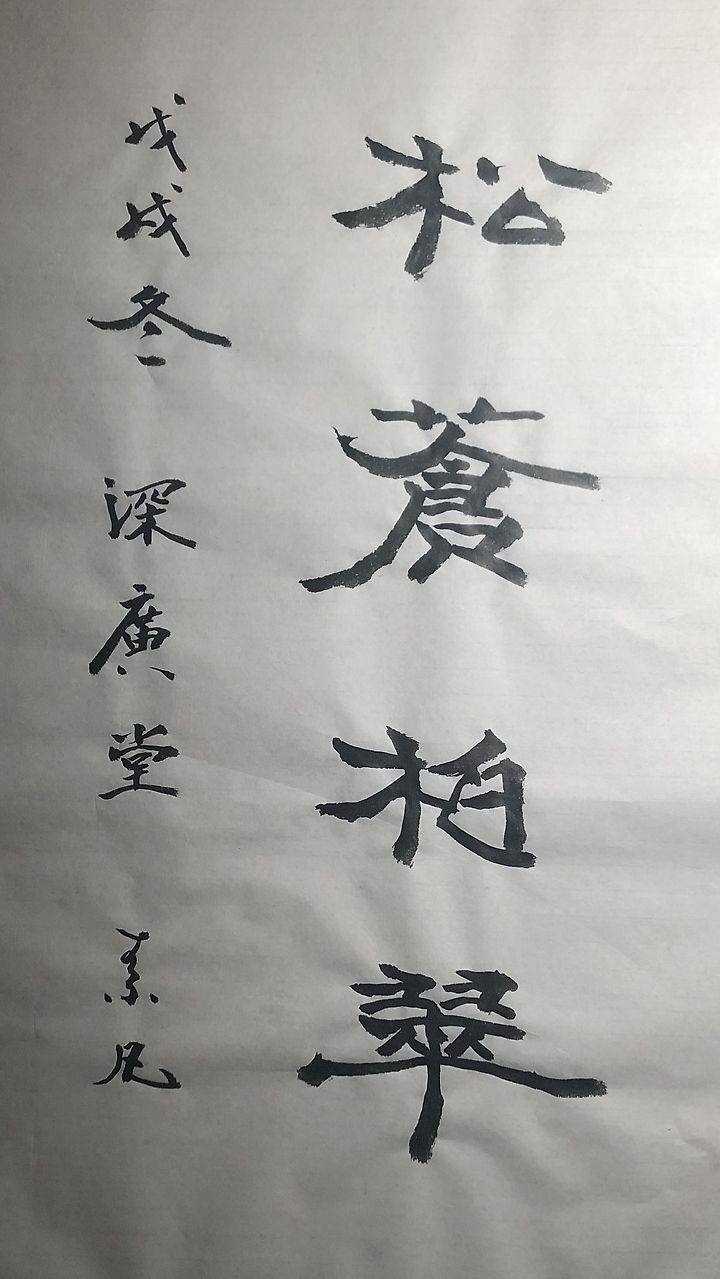 松蒼柏翠
戊戌冬 深廣堂 素凡